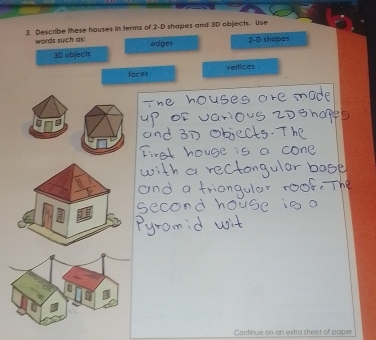 3. Describe these houses in terms of 2-D shapes and 3D objects. Use
words such as:
edges
2-D shapes
3D objects
faces
vertices
The houses are made
up of various 2D shapes
and 3D objects. The
First house is a cone
with a rectangular base
and a triangular roof. The
second house is a
Pyramid wit
Continue on an extra sheet of paper